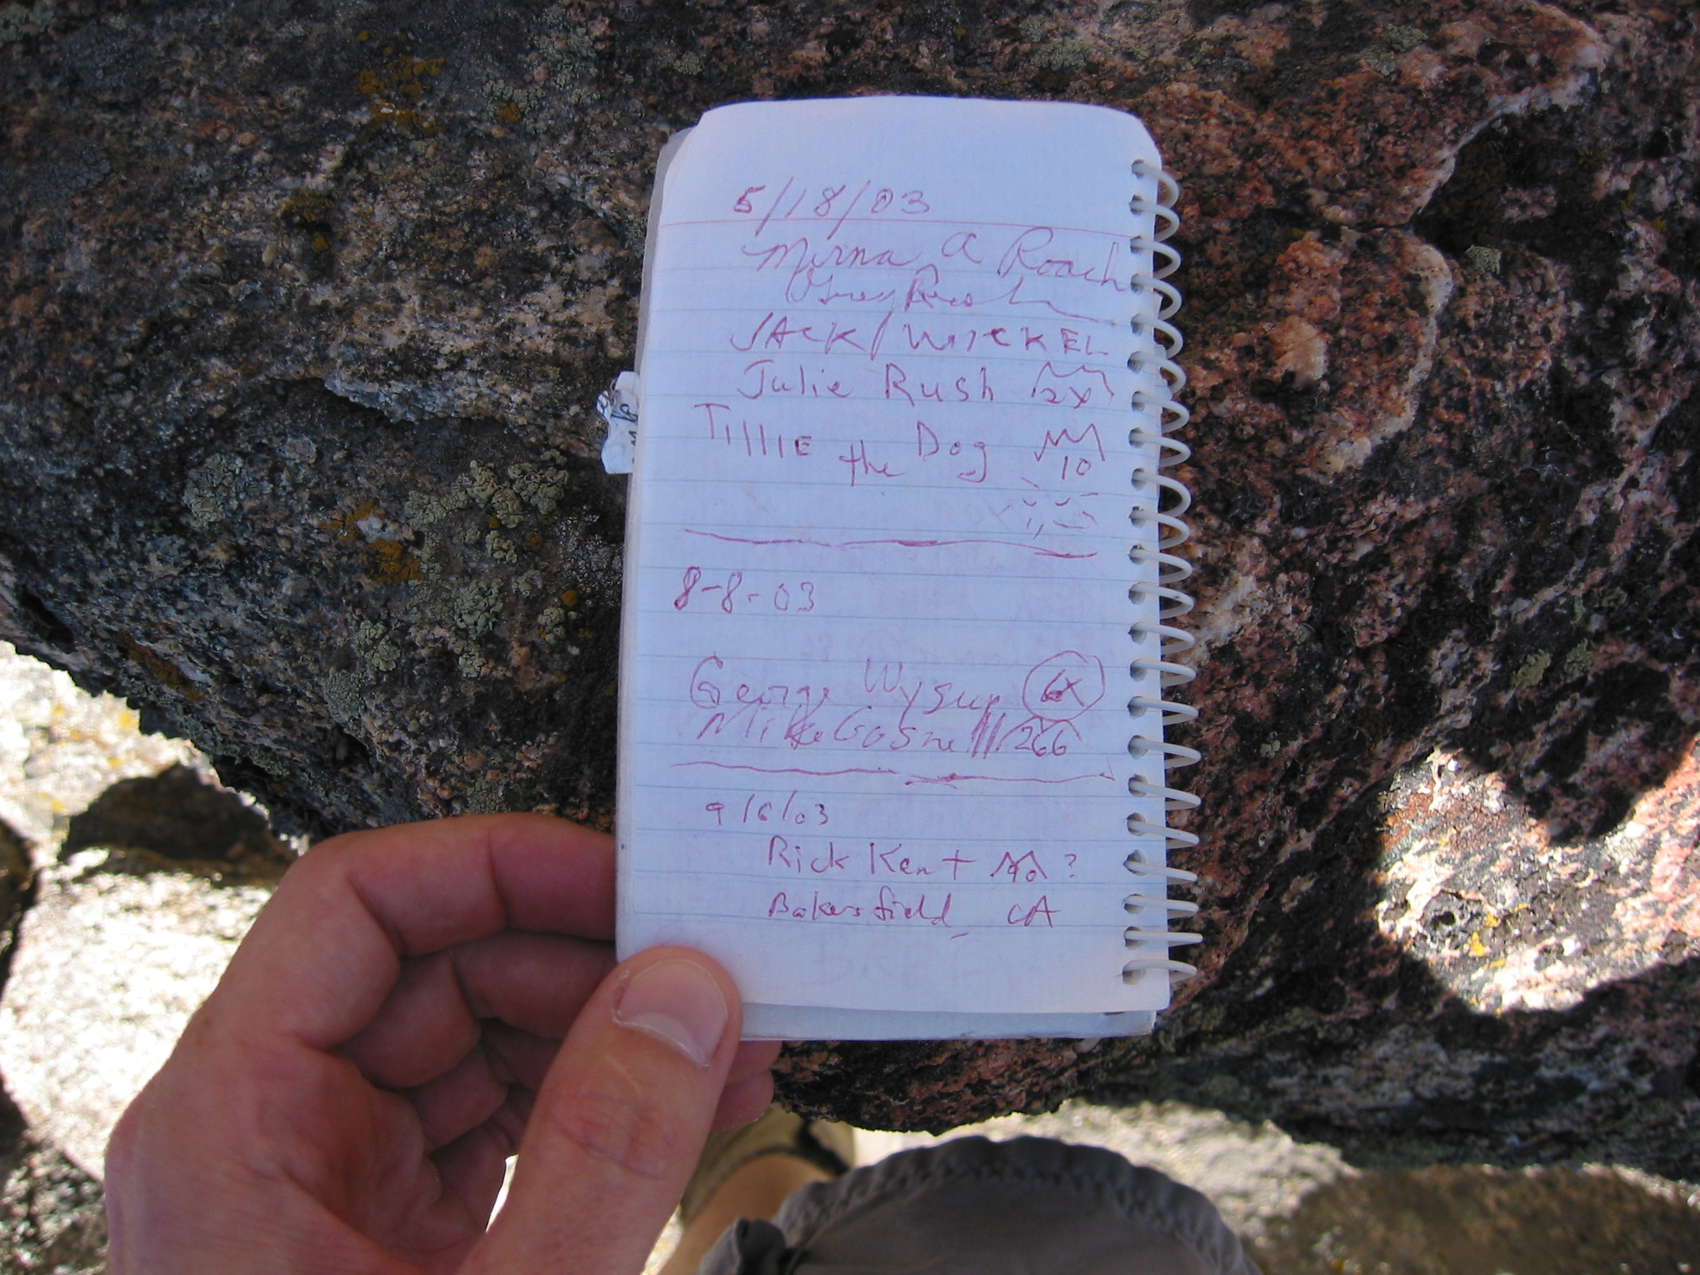 5/18/03
Mirna A Roach
Greg Roach
JACK/WICKEL
Julie Rush 2x
TIllIE the Dog 10
8-8-03
George Wysup 6X
Mike Gosnell 266
9/6/03
Rick Kent ?
Bakersfield, CA